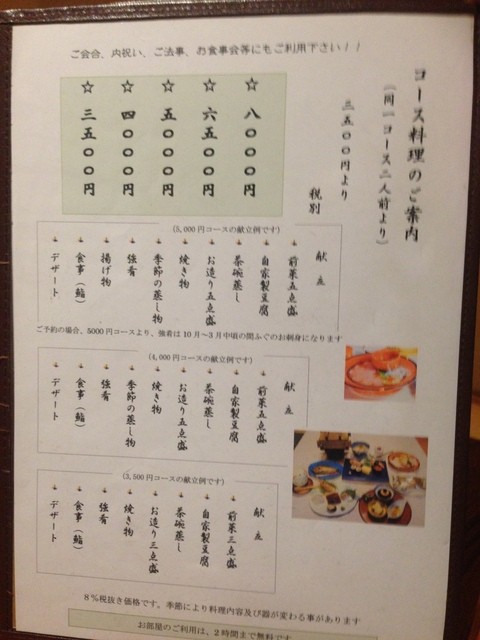 ご会合、内祝い、ご法事、お食事会等にもご利用下さい！！
コース料理のご案内
（同一コース二人前より）
三五〇〇円より
税別
☆ 八〇〇〇円
☆ 六五〇〇円
☆ 五〇〇〇円
☆ 四〇〇〇円
☆ 三五〇〇円
(5,000円コースの献立例です)
献立
前菜五点盛
自家製豆腐
茶碗蒸し
お造り五点盛
焼き物
季節の蒸し物
強肴
揚げ物
食事（鮨）
デザート
ご予約の場合、5000円コースより、強肴は10月～3月中頃の間ふぐのお刺身になります
(4,000円コースの献立例です)
献立
前菜五点盛
自家製豆腐
茶碗蒸し
お造り五点盛
焼き物
季節の蒸し物
強肴
食事（鮨）
デザート
(3,500円コースの献立例です)
献立
前菜三点盛
自家製豆腐
茶碗蒸し
お造り三点盛
焼き物
強肴
食事（鮨）
デザート
8%税抜き価格です。季節により料理内容及び器が変わる事があります
お部屋のご利用は、2時間まで無料です